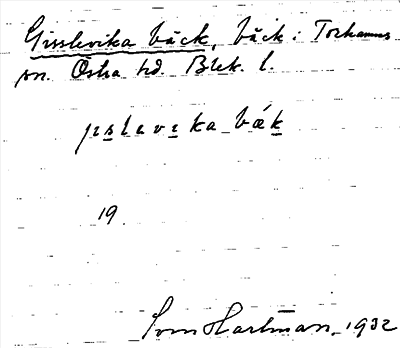 Gisslevika bäck, bäck i Torhamns
sn. Östra hd Blek. l.
jɪslevɪka bäk
19.
Sven Hartman, 1932